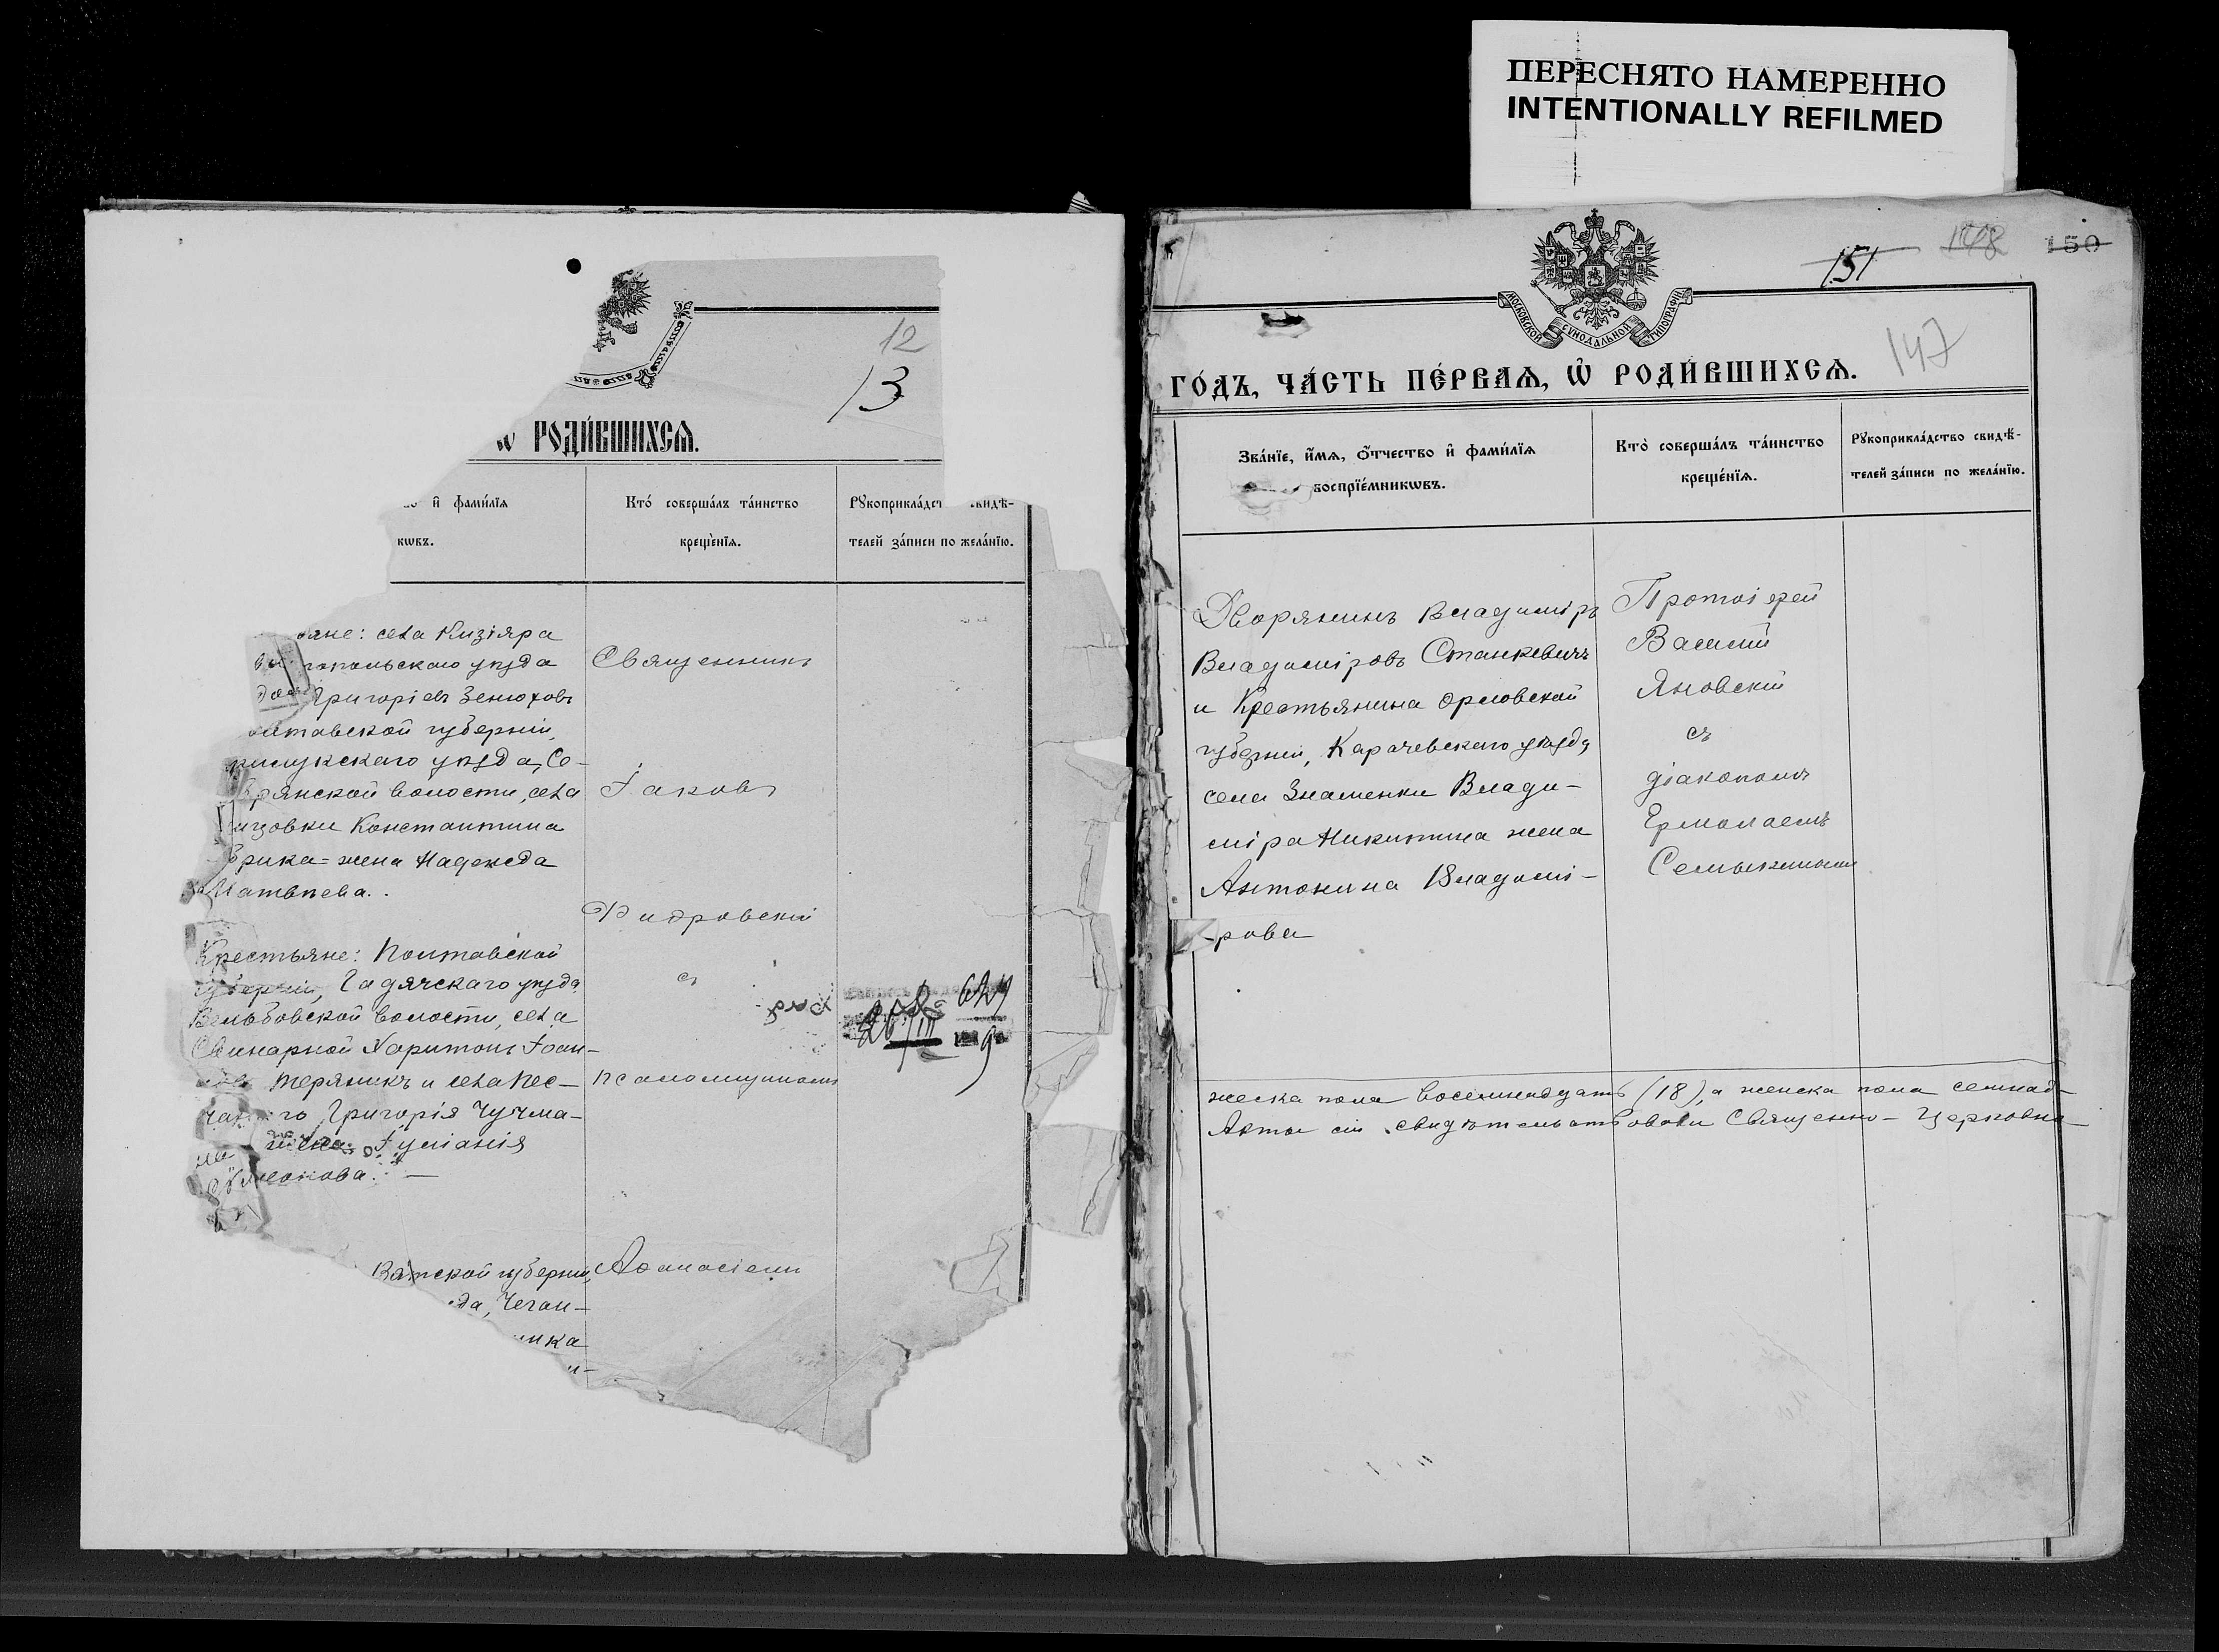 ПЕРЕСНЯТО НАМЕРЕННО
INTENTIONALLY REFILMED
12
13
ѡ҆ РОДИ́ВШИХСѦ.
и҆ фами́лїѧ
кѡвъ.
Кто́ соверша́лъ та́инство
креще́нїѧ.
Рꙋкоприкла́дст свидѣ́-
телей за́писи по жела́нїю.
яне: села Кизіяра
польскаго уѣзда
Григоріевъ Зенюховъ
лтавской губерніи,
рилукскаго уѣзда, Се-
брянской волости, села
Константина
жена Надежда
Матвѣева.
Священникъ
Іаковъ
съ
Крестьяне: Полтавской
губерніи, Гадячскаго уѣзда
Вельбовской волости, села
Свинарной Харитонъ Іоан-
Теряникъ и села Пес-
чан го Григорія Чучма-
жена Іуліанія
псаломщикомъ
Аѳанасіемъ
Вятской губерніи,
да, Чеган-
ика
и-
629
26/III
151
148
150
147
МОСКОВСКОЙ СѴНОДАЛЬНОЙ ТИПОГРАФІИ
ГО́ДЪ, ЧА́СТЬ ПЕ́РВАѦ, Ѡ҆ РОДИ́ВШИХСѦ.
Зва́нїе, и҆́мѧ, ѻ҆́тчество и҆ фами́лїѧ
воспрїе́мникѡвъ.
Кто̀ соверша́лъ та́инство
креще́нїѧ.
Рꙋкоприкла́дство свидѣ́-
телей за́писи по жела́нїю.
Дворянинъ Владиміръ
Владиміровъ Станкевичъ
и Крестьянина Орловской
губерніи, Карачевскаго уѣзда
села Знаменки Влади-
міра Никитина жена
Антонина Владимі-
рова
Протоіерей
Василій
Яновскій
съ
діакономъ
Ермолаемъ
Семыкинымъ
жеска пола восемнадцать (18), а женска пола семнад-
Акты сіи свидѣтельствовали Священно-Церковно-